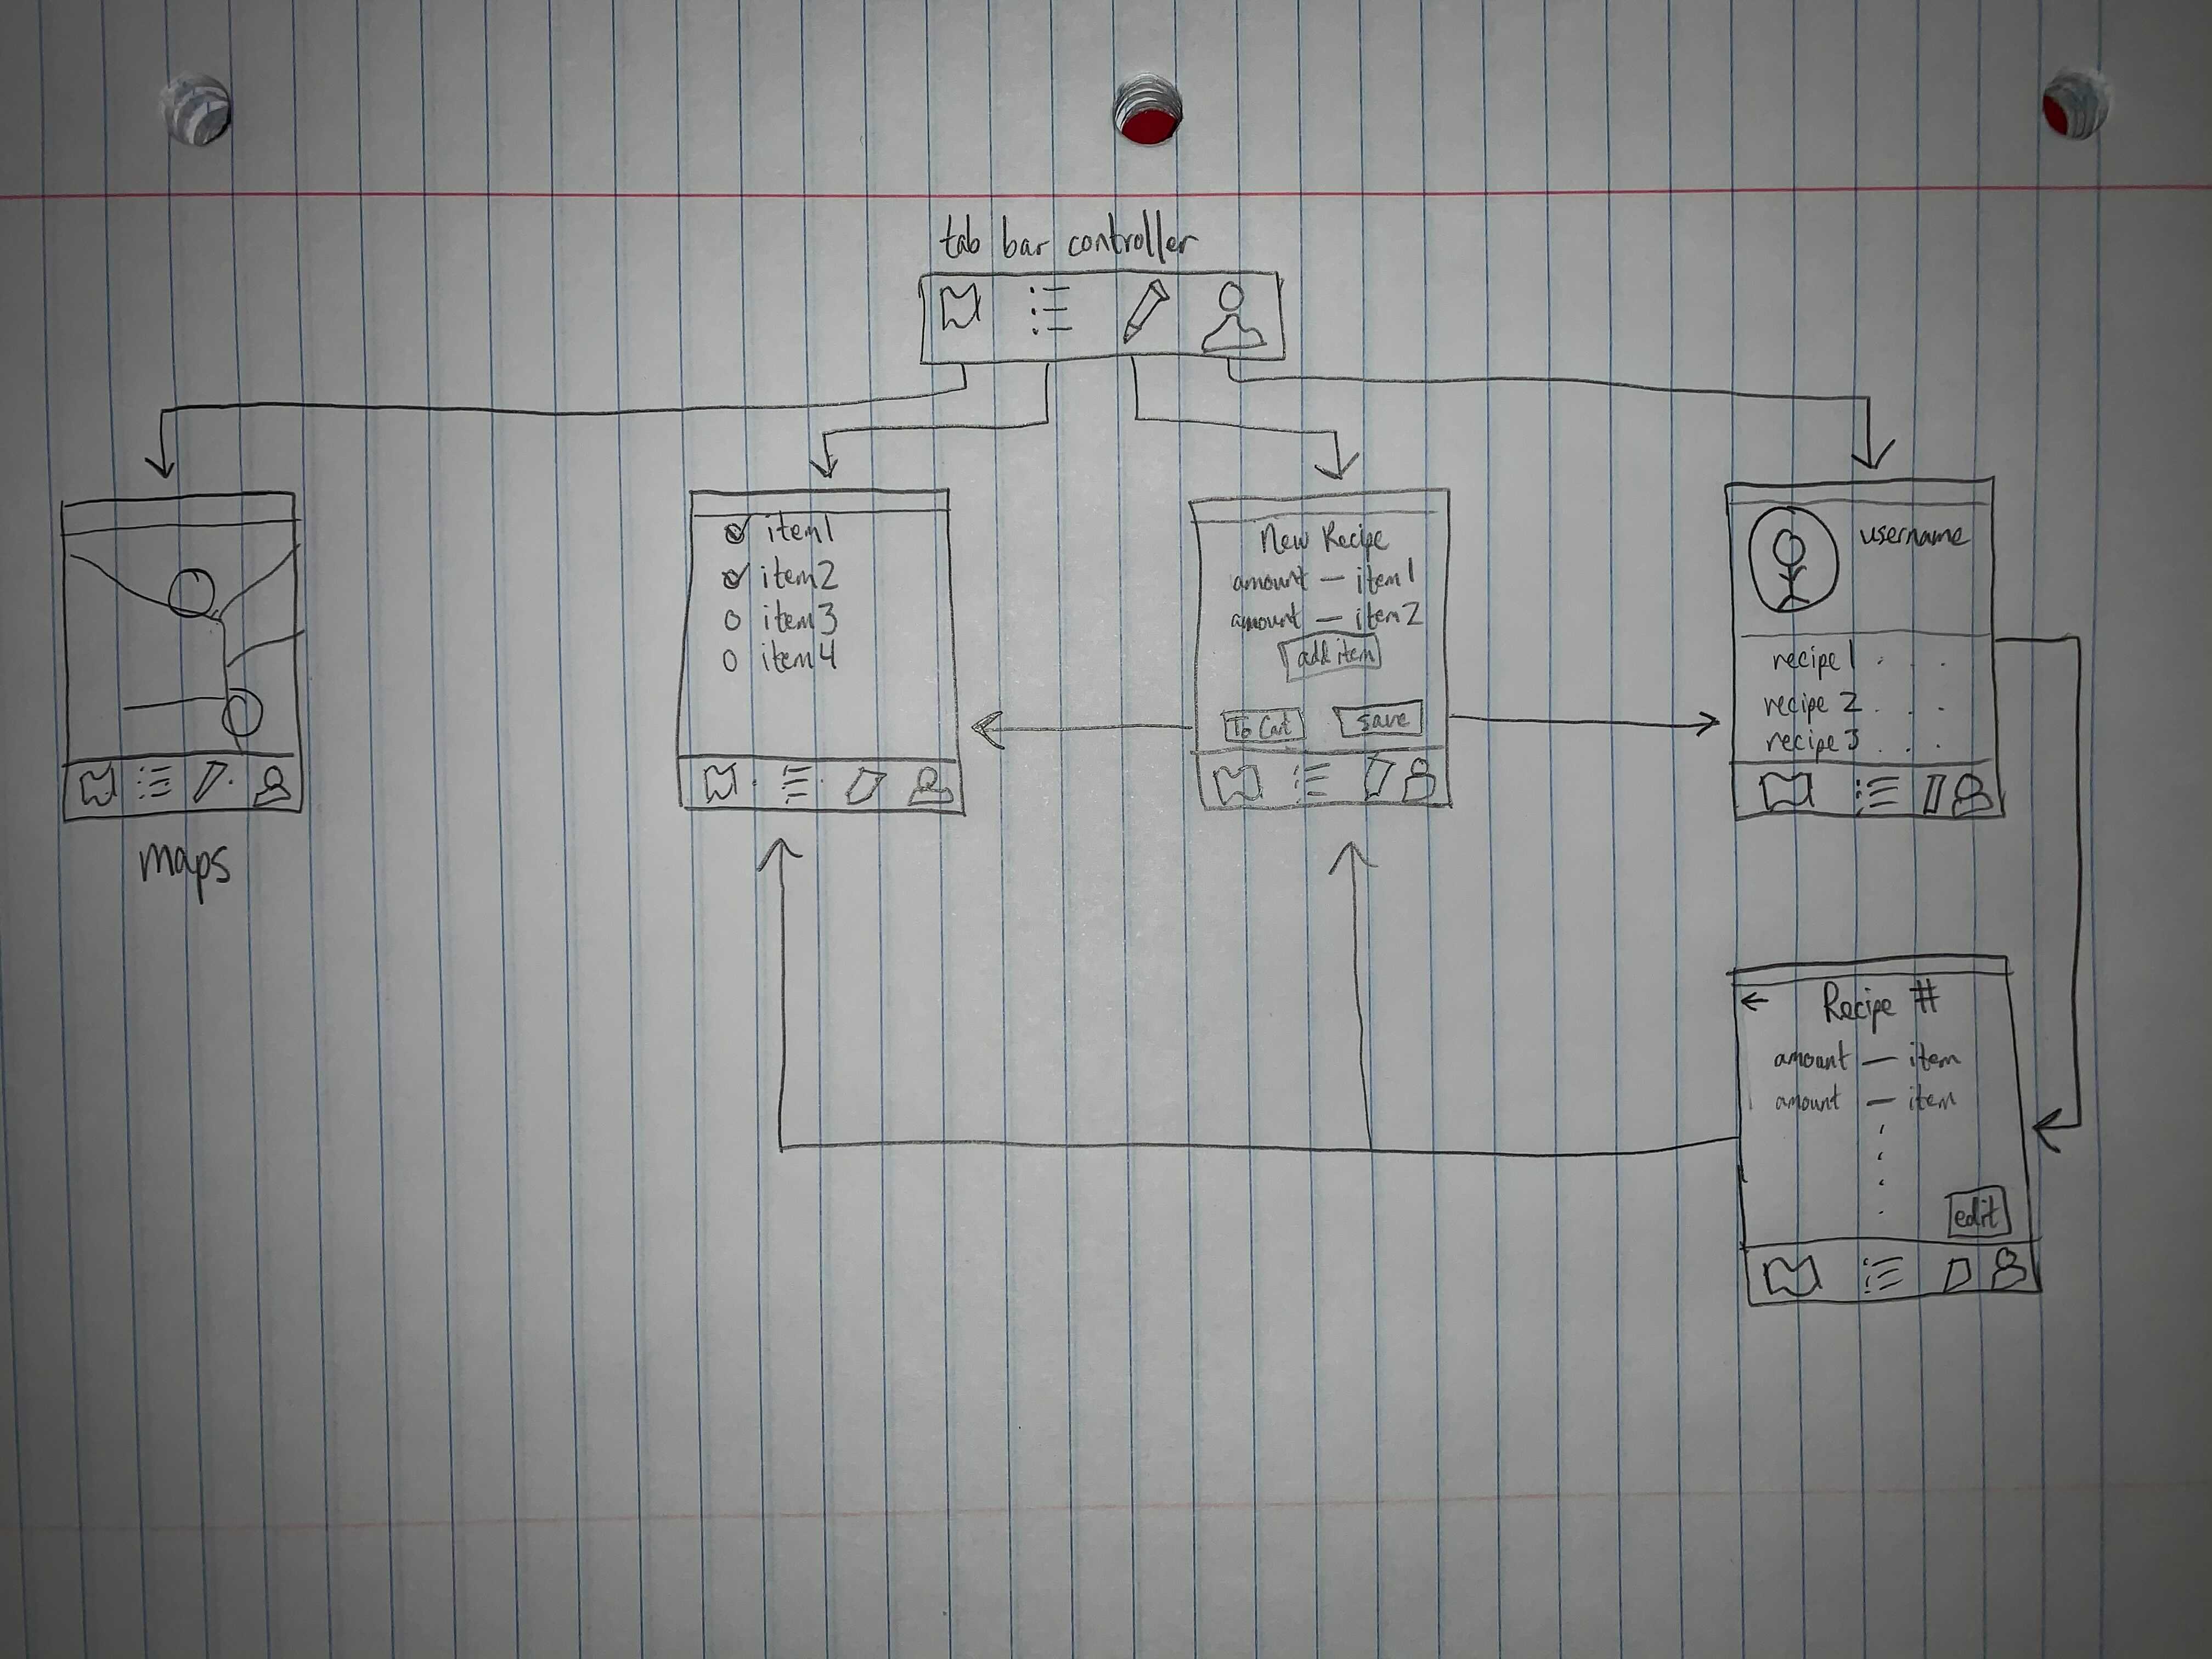 tab bar controller
item1
item2
item3
item4
New Recipe
amount — item1
amount — item2
add item
To Cart
save
username
recipe 1 . . .
recipe 2 . . .
recipe 3 . . .
maps
← Recipe #
amount — item
amount — item
edit